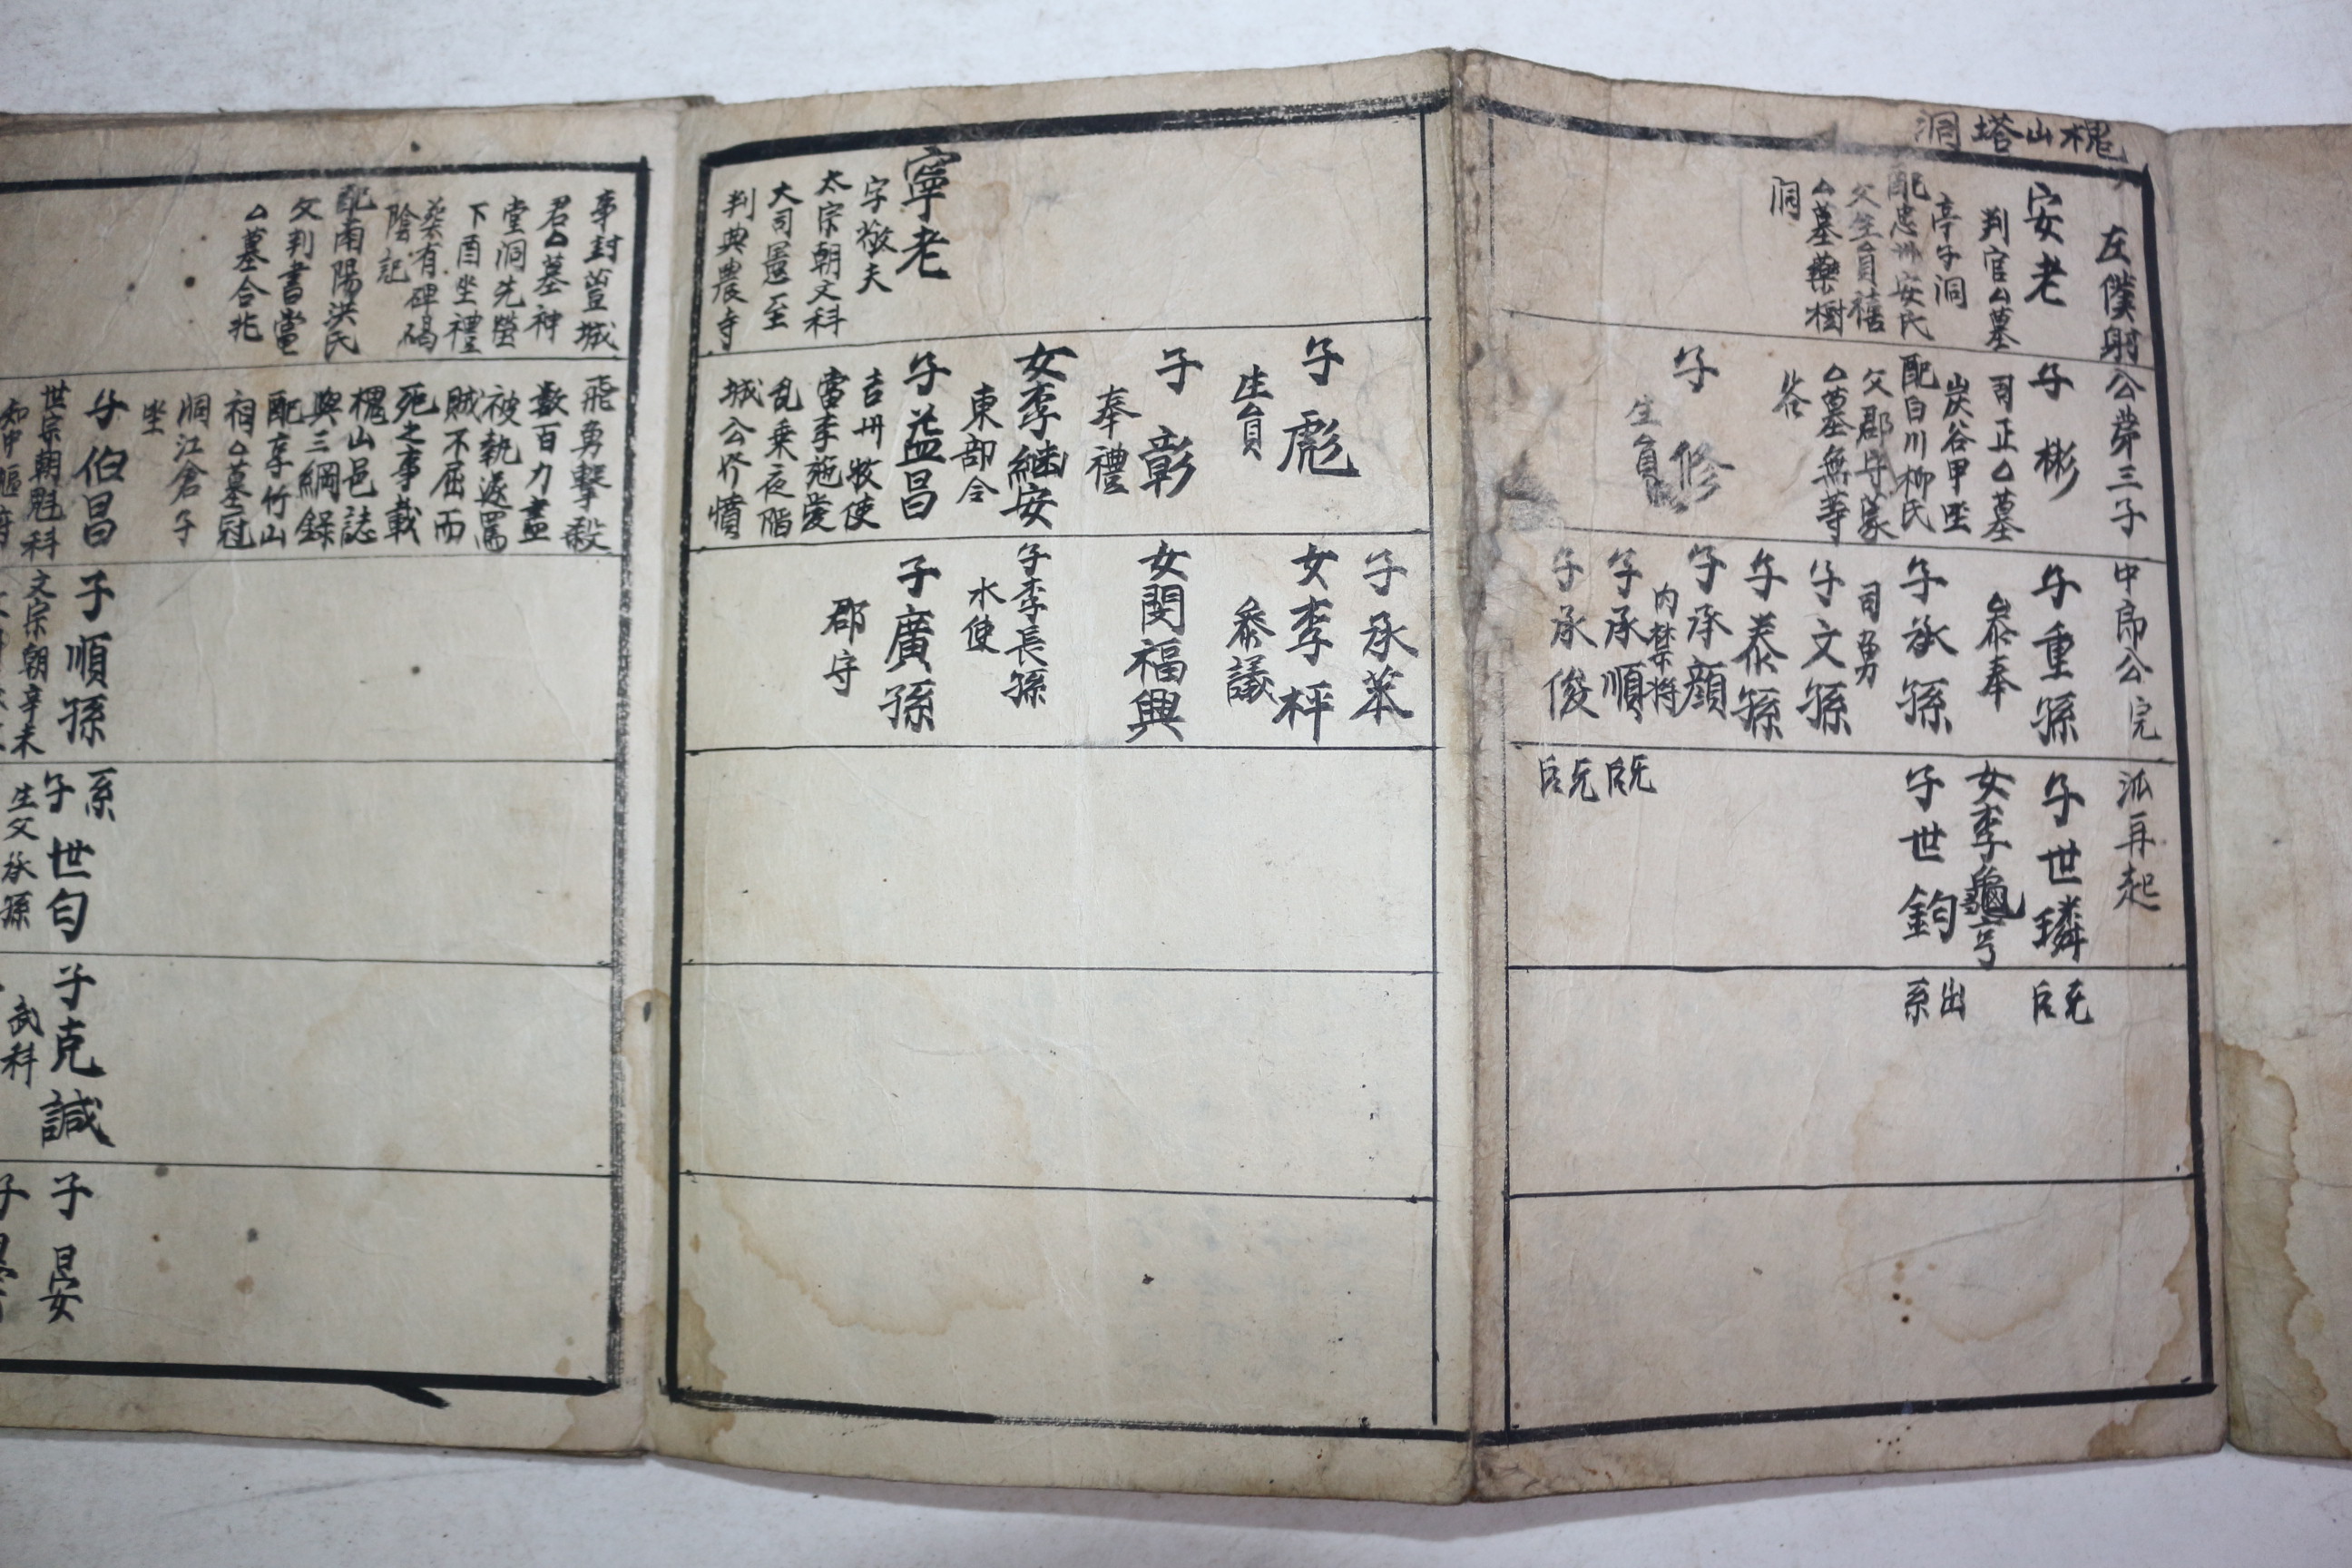 槐山塔洞
左僕射公第三子中郎公完派再起
安老
判官△墓
亭子洞
配忠州安氏
父生員禧
△墓藥樹
洞
子彬
司正△墓
炭谷甲坐
配白川柳氏
父郡守蒙
△墓無等
谷
子修
生員
子重孫
參奉
子承孫
司勇
子文孫
子泰孫
子承顔
内禁將
子承順
子承俊
子世璘
女李龜亨
子世鈞
后无
后无
后无
系出
寧老
字敬夫
太宗朝文科
大司憲至
判典農寺
子彪
生員
子彰
奉禮
女李繼安
東部令
子益昌
吉州牧使
當李施愛
乱乘夜階
城公忿憤
子承萊
女李枰
參議
女閔福興
子李長孫
水使
子廣孫
郡守
事封豊城
君△墓神
堂洞先塋
下酉坐禮
葬有碑碣
陰記
配南陽洪氏
父判書當
△墓合兆
飛勇擊殺
數百力盡
被執遂罵
賊不屈而
死之事載
槐山邑誌
與三綱錄
配享竹山
祠△墓冠
洞江倉子
坐
子伯昌
世宗朝魁科
知中樞府
子順孫
文宗朝辛未
系
子世匀
生父承孫
子克諴
武科
子晏
子